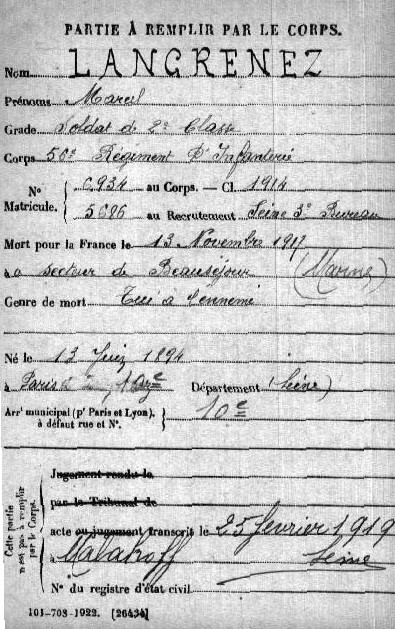 PARTIE À REMPLIR PAR LE CORPS.
Nom LANGRENEZ
Prénoms Marcel
Grade Soldat de 2e Classe
Corps 56e Régiment d'Infanterie
No Matricule. 6.934 au Corps. — Cl. 1914
5686 au Recrutement Seine 3e Bureau
Mort pour la France le 13 Novembre 1917
à secteur de Beauséjour (Marne)
Genre de mort Tué à l'ennemi
Né le 13 1894
à Paris Département (Seine)
Arrt municipal (pr Paris et Lyon), à défaut rue et No. 10e
Cette partie n'est pas à remplir par le Corps.
Jugement rendu le
par le Tribunal de
acte ou jugement transcrit le 25 février 1919
à Malakoff Seine
No du registre d'état civil
101-708-1922. [26434]